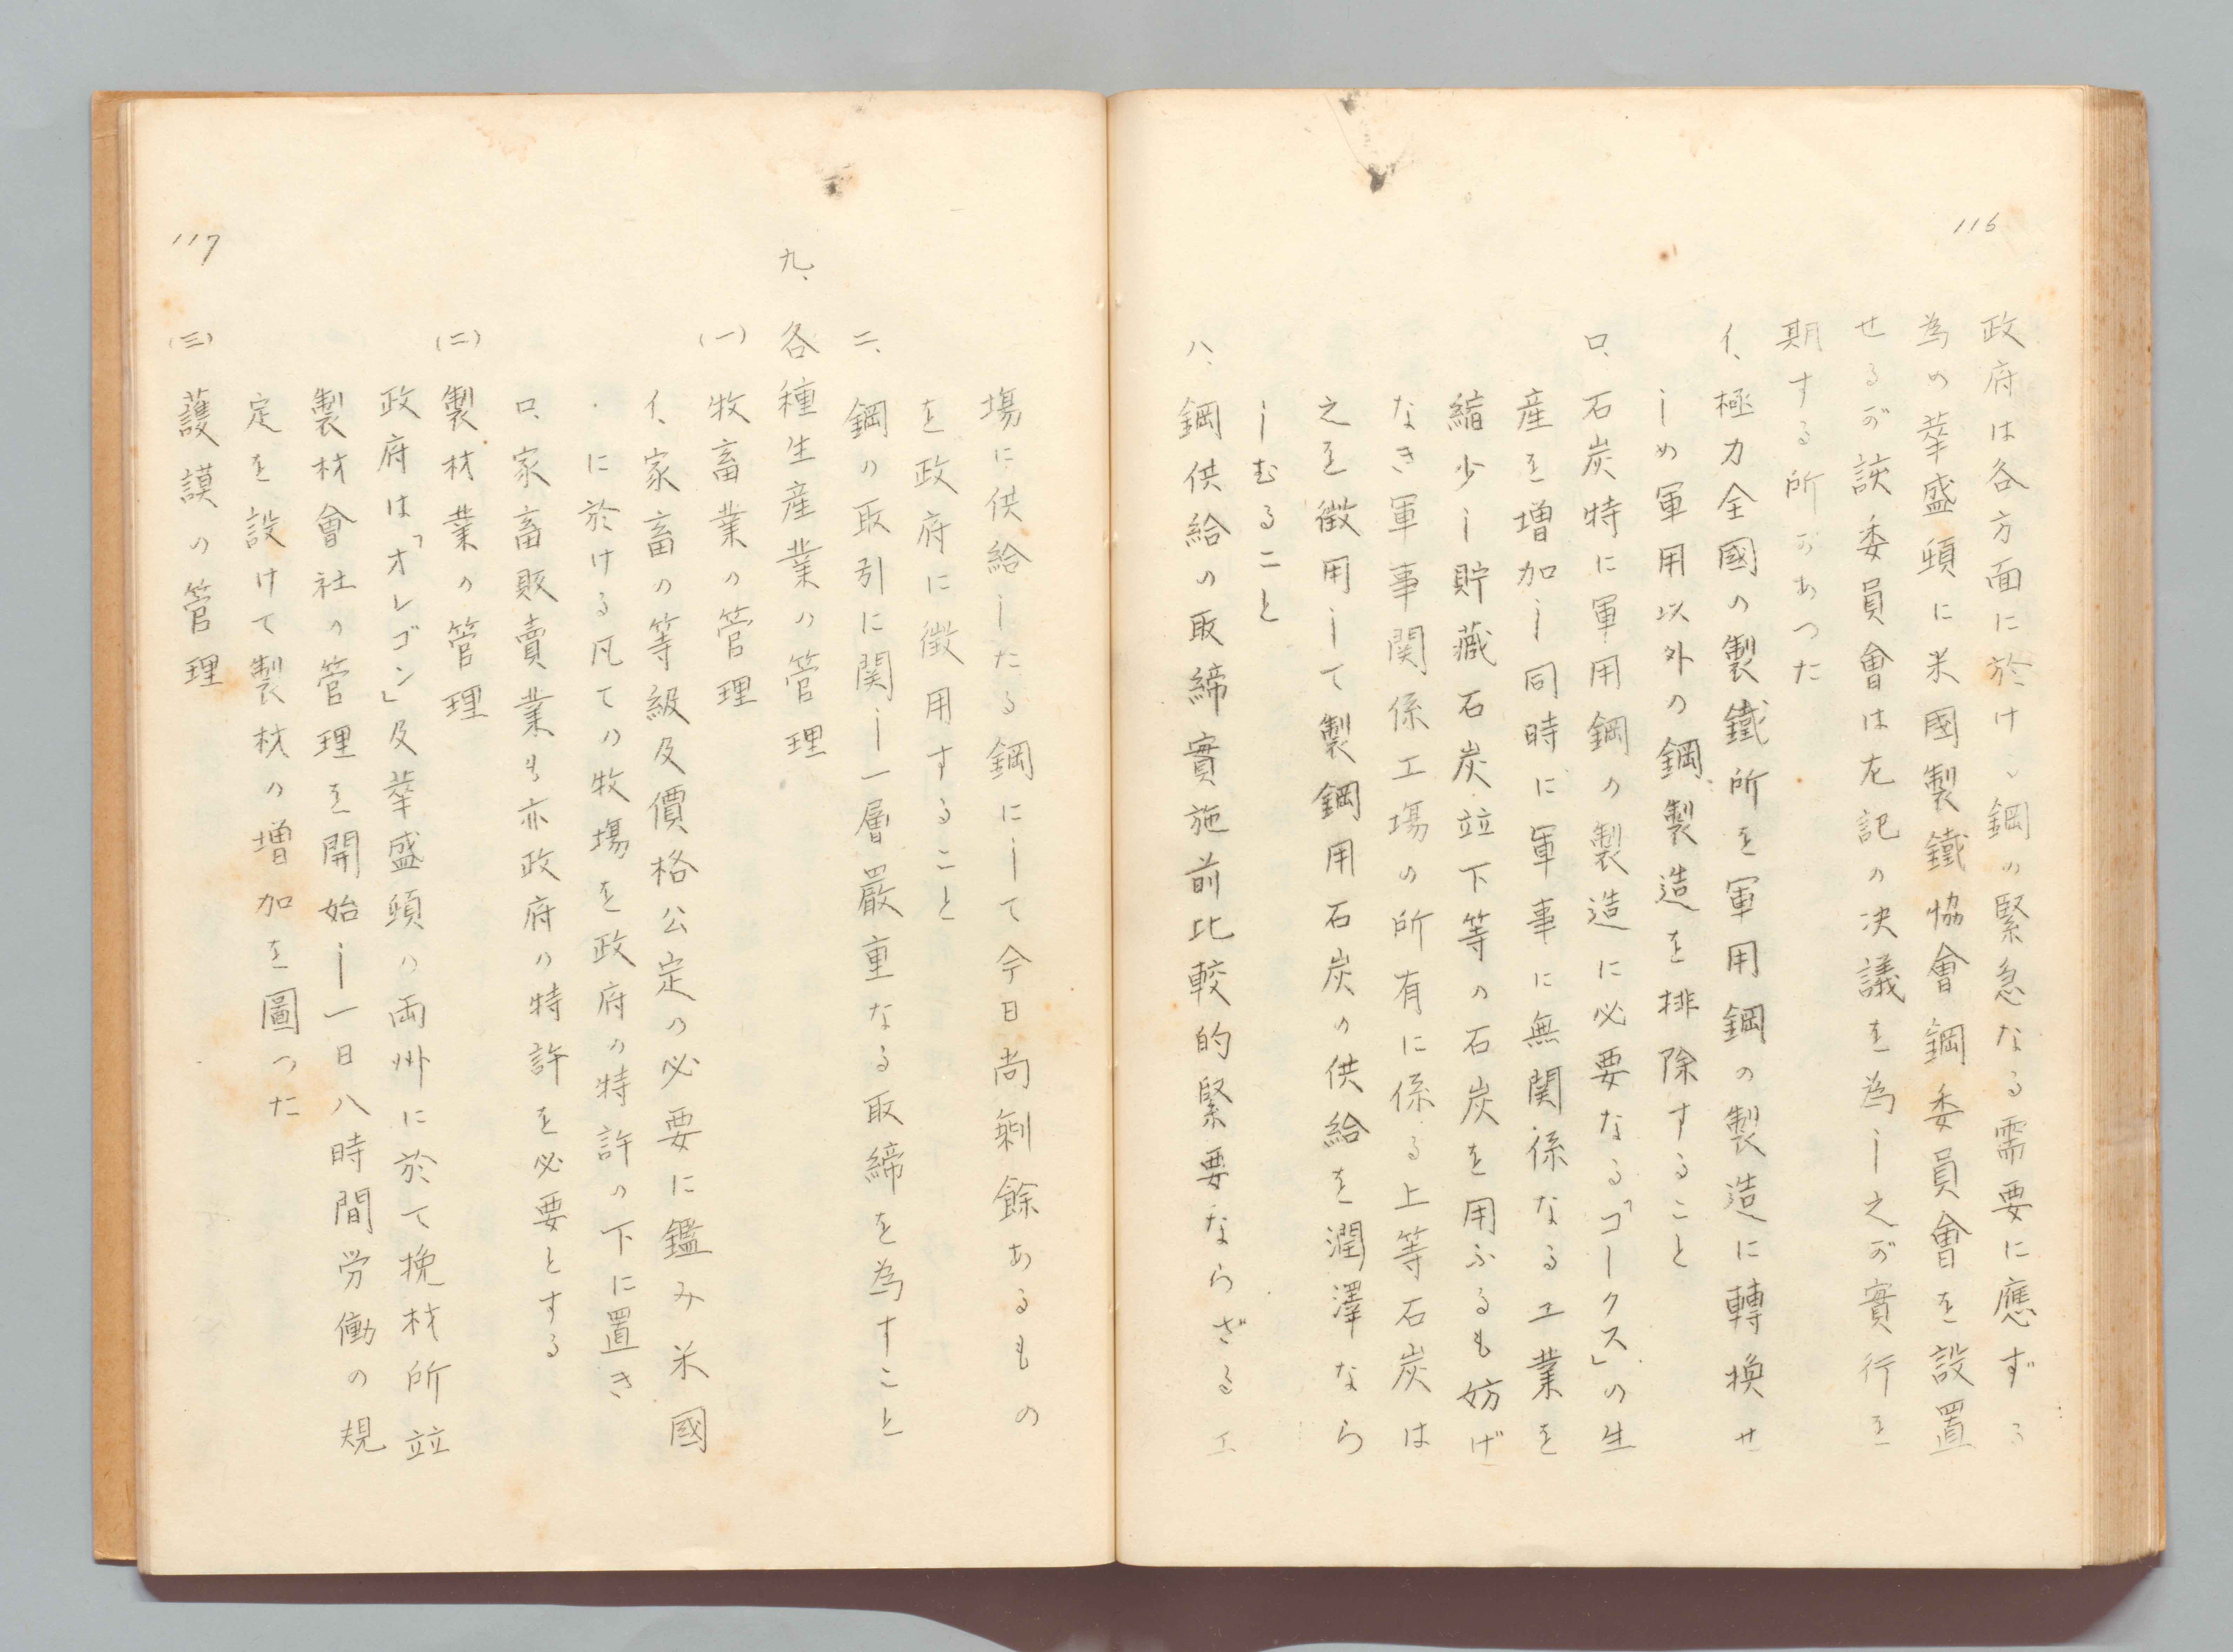 116
政府は各方面に於ける鋼の緊急なる需要に應ずる
為の華盛頓に米國製鐵協會鋼委員會を設置
せるが該委員會は左記の決議を為し之が實行を
期する所があつた
イ、極力全國の製鐵所を軍用鋼の製造に轉換せ
しめ軍用以外の鋼製造を排除すること
ロ、石炭特に軍用鋼の製造に必要なる「コークス」の生
産を增加し同時に軍事に無関係なる工業を
縮少し貯藏石炭竝下等の石炭を用ふるも妨げ
なき軍事関係工場の所有に係る上等石炭は
之を徴用して製鋼用石炭の供給を潤澤なら
しむること
ハ、鋼供給の取締實施前比較的緊要ならざる工
場に供給したる鋼にして今日尚剰餘あるもの
を政府に徴用すること
ニ、鋼の取引に関し一層嚴重なる取締を為すこと
九、各種生産業の管理
(一)牧畜業の管理
イ、家畜の等級及價格公定の必要に鑑み米國
に於ける凡ての牧場を政府の特許の下に置き
ロ、家畜販賣業も亦政府の特許を必要とする
(二)製材業の管理
政府は「オレゴン」及華盛頓の両州に於て挽材所竝
製材會社の管理を開始し一日八時間労働の規
定を設けて製材の增加を圖つた
(三)護謨の管理
117